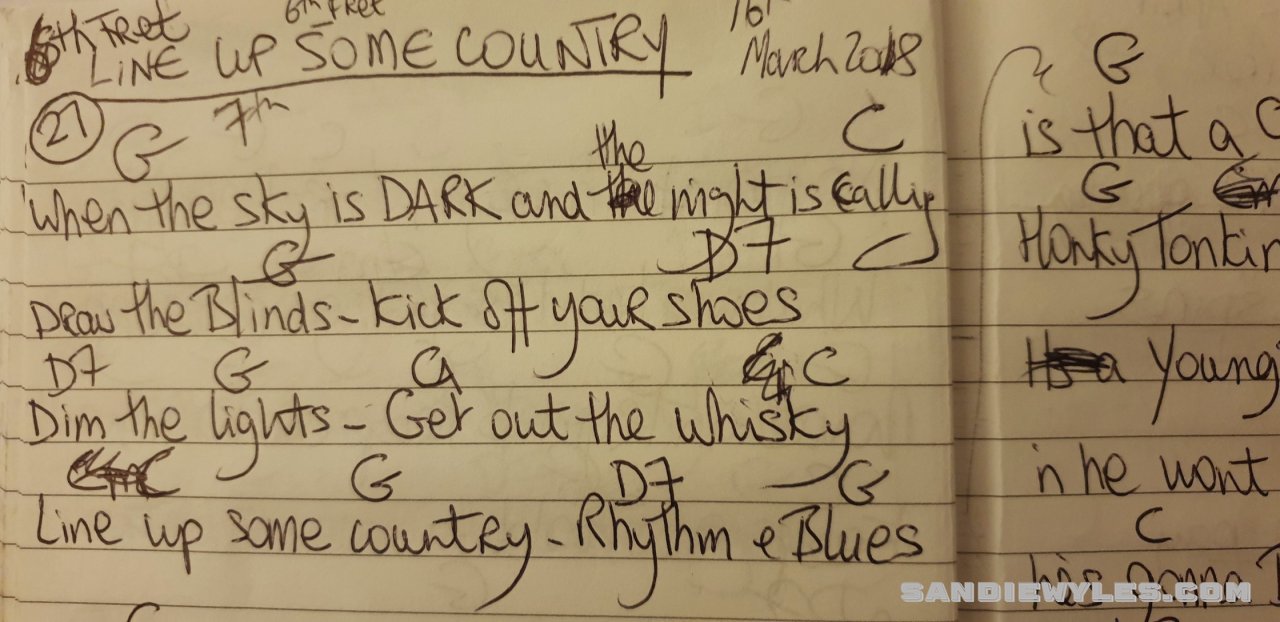 6th FRet
6th FRet
LINE UP SOME COUNTRY
March 2018
27 G 7th
the C
When the sky is DARK and the night is callig
G D7 C
DRaw the Blinds - Kick off your shoes
D7 G G C
Dim the lights - Get out the whisky
G D7 G
Line up some country - Rhythm e Blues
G
is that a
G
Honky Tonkin
a Young
n he wont
C
his gonna
SANDIEWYLES.COM